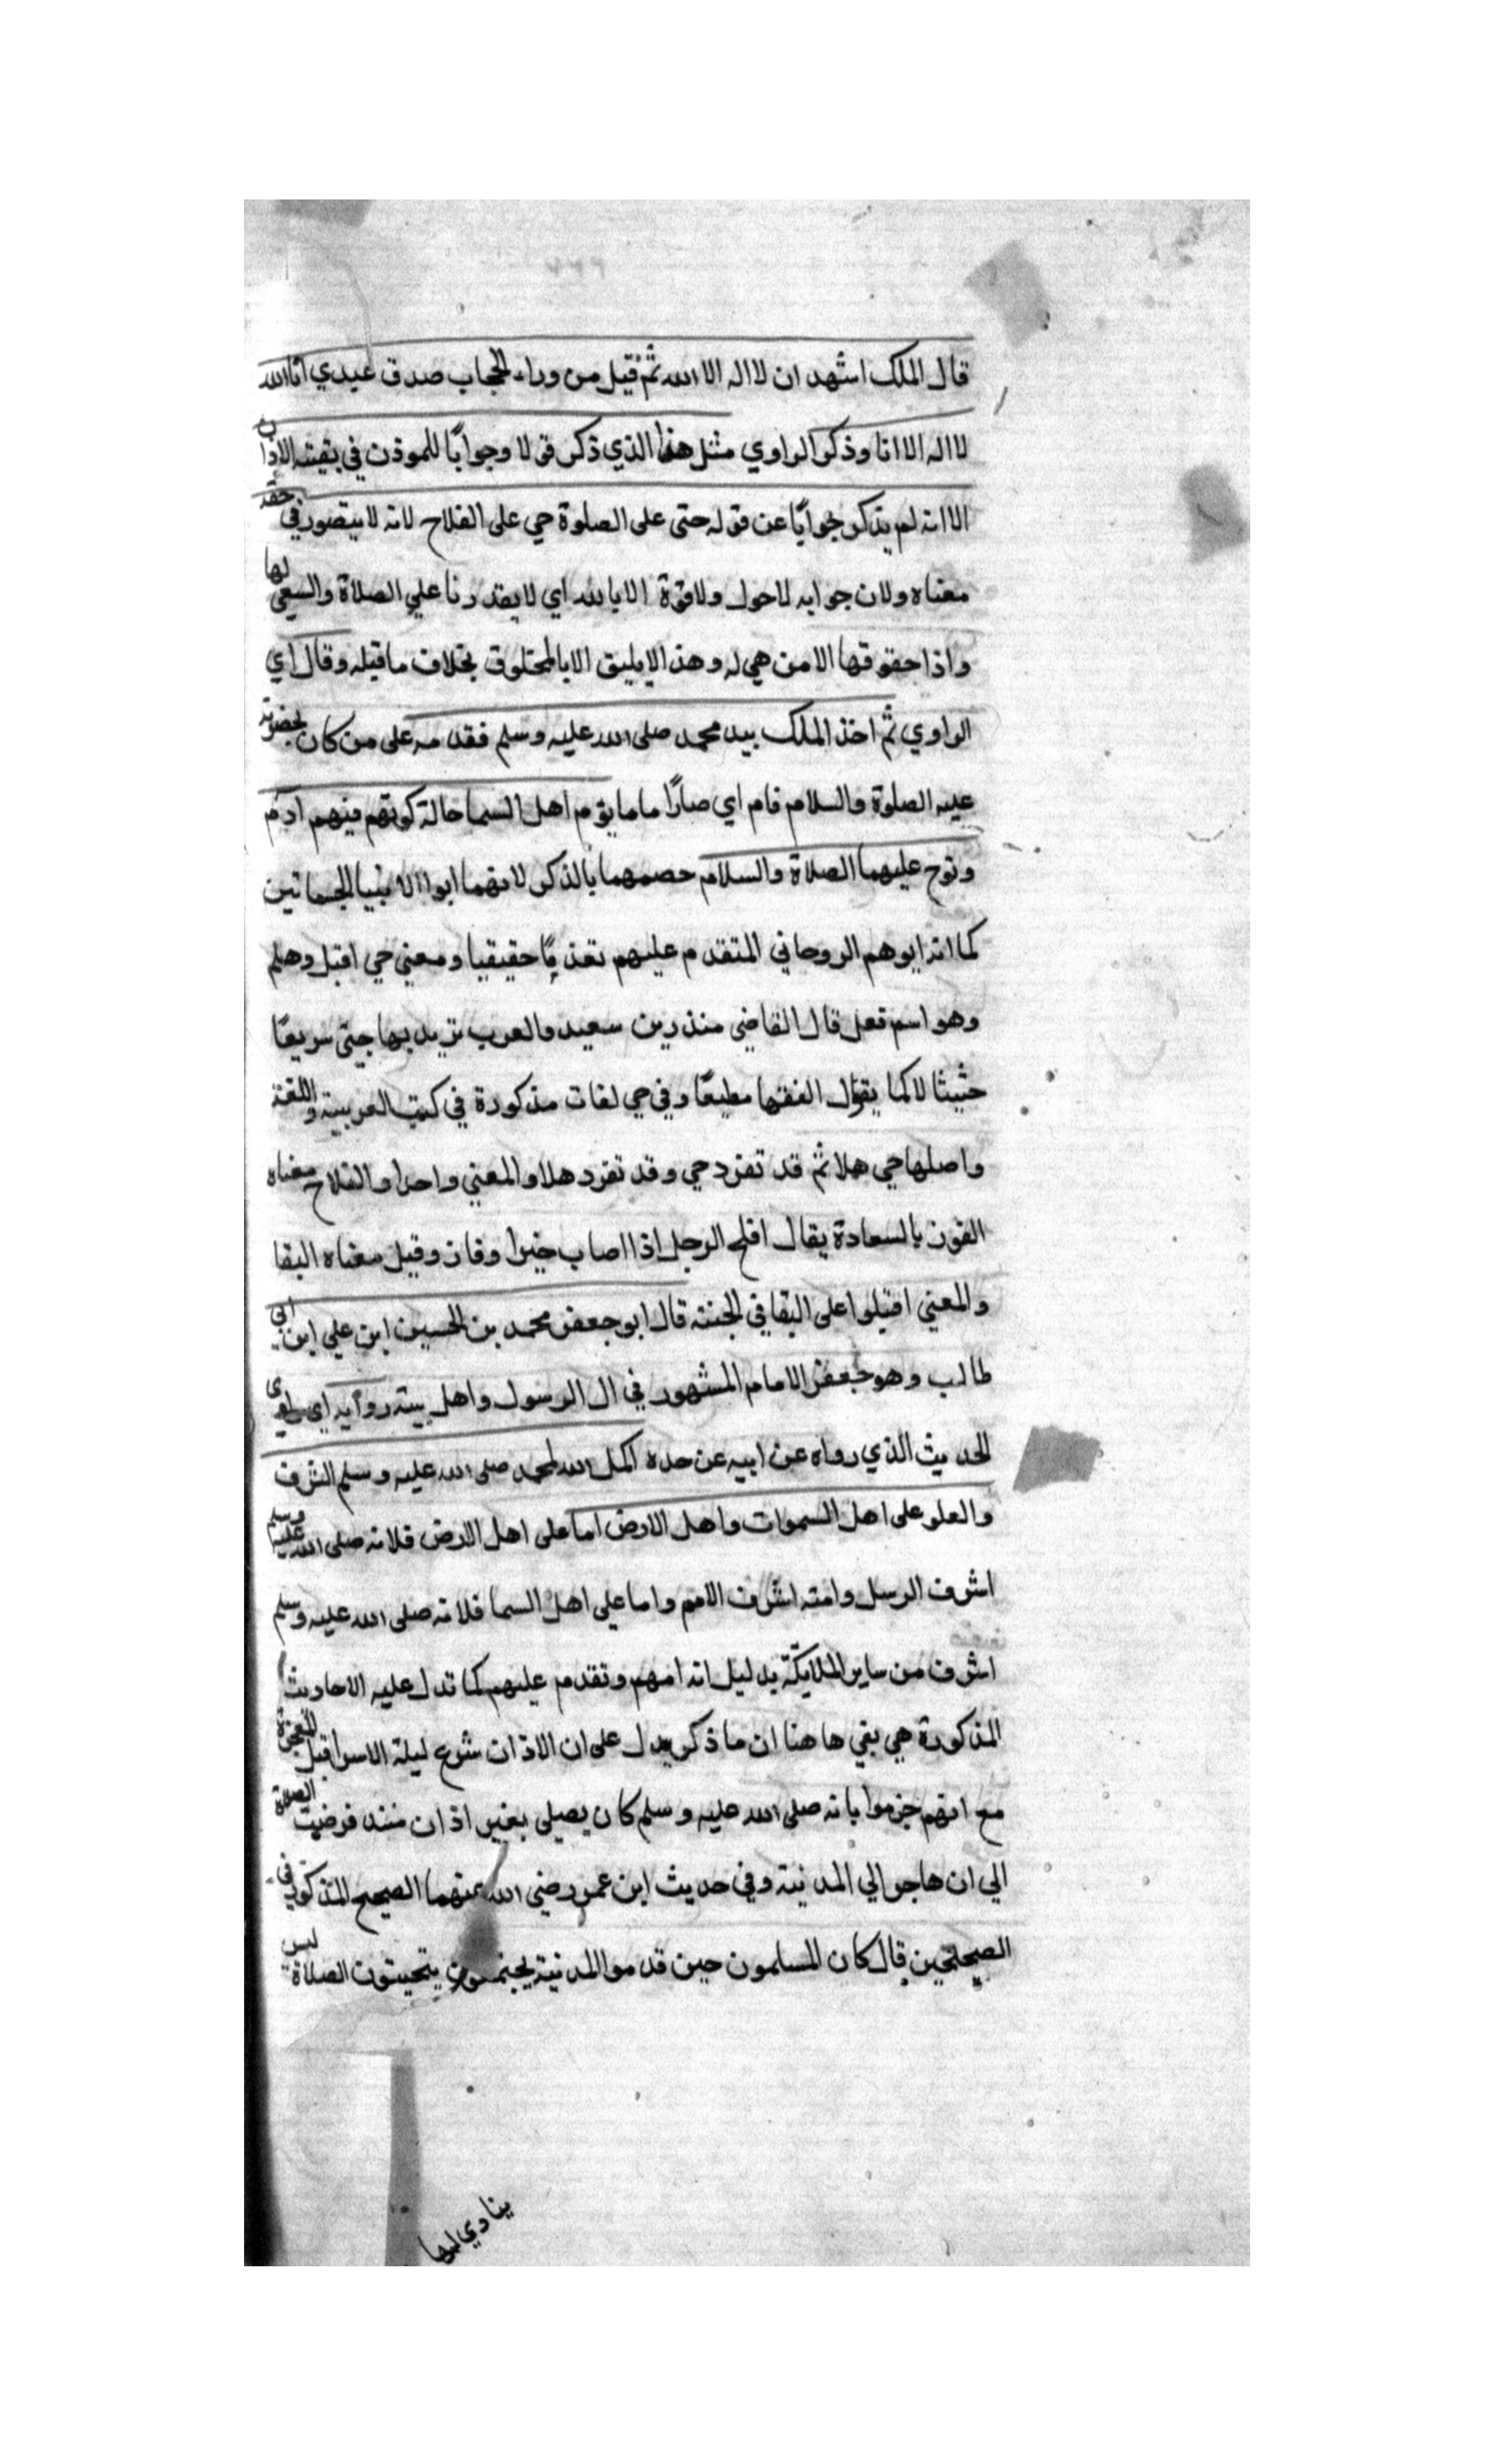 قال الملك اشهد ان لا اله الا الله ثم قيل من وراء الحجاب صدق عبدي انا الله
لا اله الا انا وذكر الراوي مثل هذا الذي ذكر قولا وجوابًا للموذن في بقية الاذان
الا انه لم يذكر جوابًا عن قوله حتى على الصلوة حي على الفلاح لانه لا يتصور في حقه
معناه ولان جوابه لا حول ولا قوة الا بالله اي لا يقدرنا علي الصلاة والسعي لها
واذا حقوقها الا من هي له وهذا لا يليق الا بالمخلوق بخلاف ما قبله وقال اي
الراوي ثم اخذ الملك بيد محمد صلى الله عليه وسلم فقدمه على من كان بحضرته
عليه الصلوة والسلام فام اي صار اماما يؤم اهل السما حالة كونهم فيهم ادم
ونوح عليهما الصلاة والسلام خصهما بالذكر لانهما ابوا الانبيا الجسمانين
كما انه ابوهم الروحاني المتقدم عليهم تقدمًا حقيقيا ومعني حي اقبل وهلم
وهو اسم فعل قال القاضي منذر بن سعيد والعرب تريد بها جئ سريعًا
حثيثا لا كما يقول الفقها مطيعًا وفي حي لغات مذكورة في كتب العربية واللغة
واصلها حي هلا ثم قد تفرد حي وقد تفرد هلا والمعني واحد والفلاح معناه
الفوز بالسعادة يقال افلح الرجل اذا اصاب خيرا وفاز وقيل معناه البقا
والمعني اقبلوا على البقا في الجنة قال ابو جعفر محمد بن الحسين ابن علي ابن ابي
طالب وهو جعفر الامام المشهور في ال الرسول واهل بيته روايه اي
الحديث الذي رواه عن ابيه عن جده اكمل الله لمحمد صلى الله عليه وسلم الشرف
والعلو على اهل السموات واهل الارض اما على اهل الارض فلانه صلى الله عليه وسلم
اشرف الرسل وامته اشرف الامم واما على اهل السما فلانه صلى الله عليه وسلم
اشرف من ساير الملايكة بدليل انه امهم وتقدم عليهم كما تدل عليه الاحاديث
المذكورة هي بقي هاهنا ان ما ذكر يدل على ان الاذان شرع ليلة الاسرا قبل الهجرة
مع انهم جزموا بانه صلى الله عليه وسلم كان يصلي بغير اذان منذ فرضيت الصلاة
الي ان هاجر الي المدينة وفي حديث ابن عمر رضي الله عنهما الصحيح المذكور في
الصحيحين قال كان المسلمون حين قدموا المدينة يجتمعون يتحينون الصلاة ليس
ينادي لها